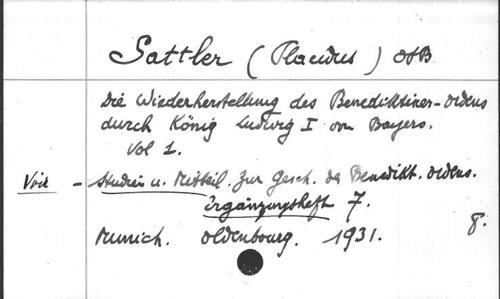 Sattler (Placidus) OSB
Die Wiederherstellung des Benediktiner-Ordens
durch König Ludwig I von Bayern.
Vol 1.
Voir - Studien u. Mitteil. zur Gesch. des Benedikt. ordens.
Ergänzungsheft 7.
Munich. Oldenbourg. 1931. 8.